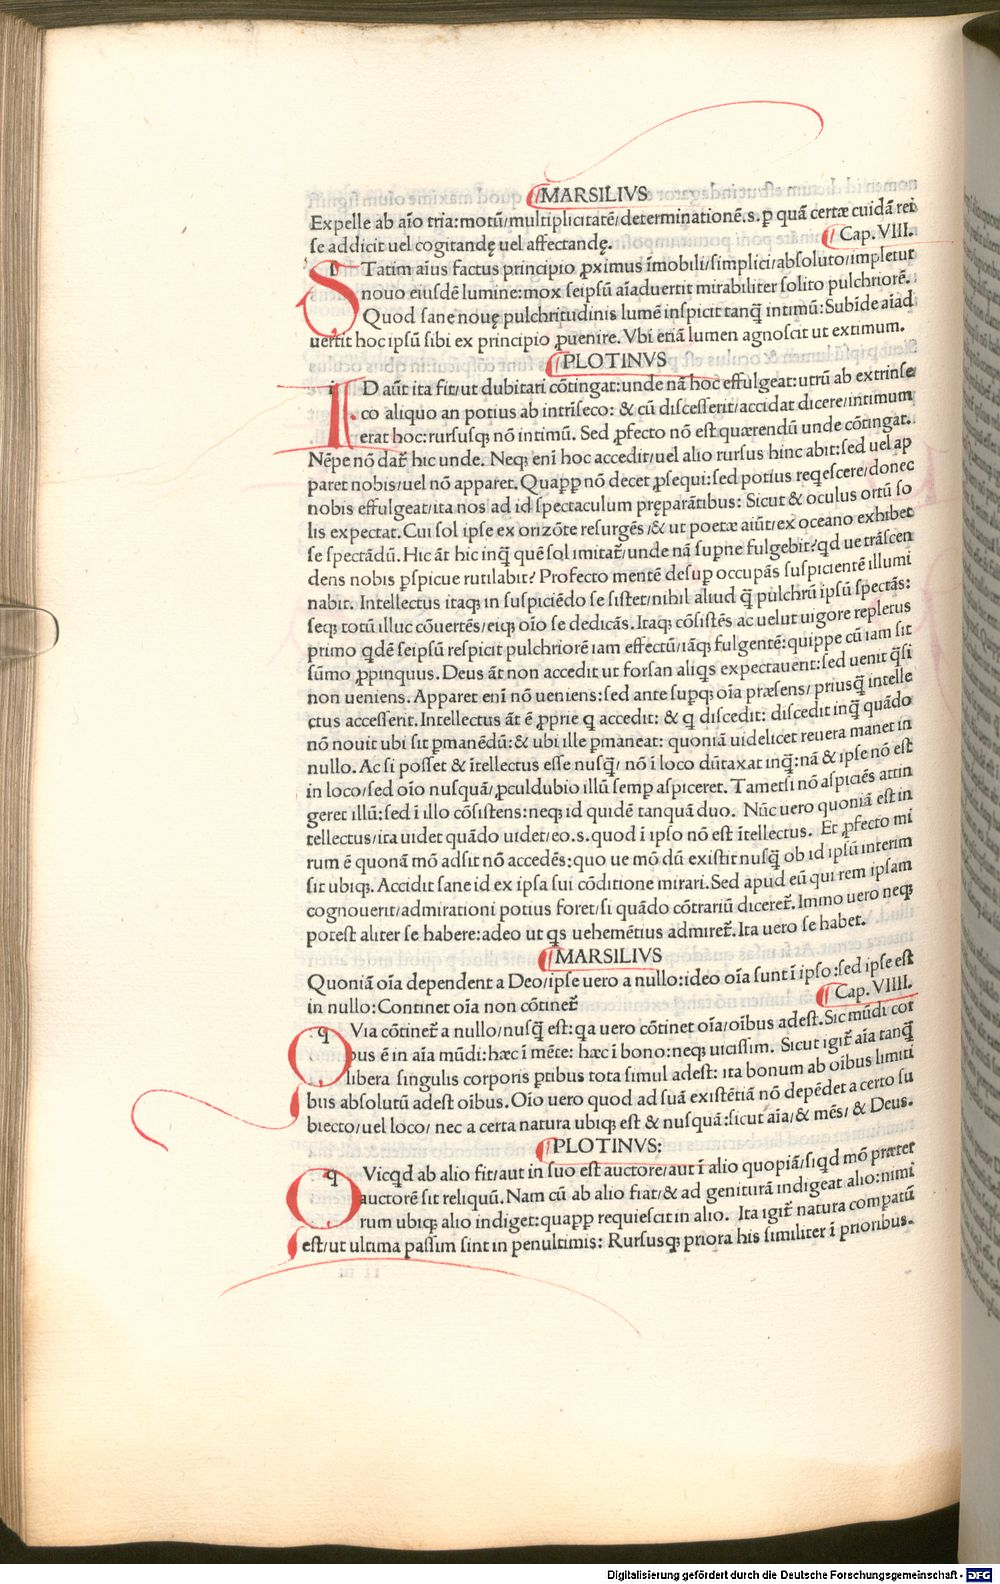 MARSILIVS
Expelle ab aīo tria:motū/multiplicitatē/determinationē.s. ꝑ quā certæ cuidā rei
se addicit uel cogitandę uel affectandę.
Cap. VIII.
STatim aīus factus principio ꝓximus īmobili/simplici/absoluto/impletur
nouo eiusdē lumine:mox seipsū aīaduertit mirabiliter solito pulchriorē.
Quod sane nouę pulchritudinis lumē inspicit tanq̄ intimū:Subīde aīad
uertit hoc ipsū sibi ex principio ꝓuenire. Vbi etiā lumen agnoscit ut extimum.
PLOTINVS
ID aūt ita fit/ut dubitari cōtingat:unde nā hoc effulgeat:utrū ab extrinse
co aliquo an potius ab intrīseco: & cū discesserit/accidat dicere/intimum
erat hoc:rursusq; nō intimū. Sed ꝓfecto nō est quærendū unde cōtingat.
Nēpe nō dat̄ hic unde. Neq; eni hoc accedit/uel alio rursus hinc abit:sed uel ap
paret nobis/uel nō apparet. Quaꝓꝑ nō decet ꝓsequi:sed potius reqescere/donec
nobis effulgeat/ita nos ad id spectaculum pręparātibus: Sicut & oculus ortū so
lis expectat. Cui sol ipse ex orizōte resurgēs/& ut poetæ aiūt/ex oceano exhibet
se spectādū. Hic āt hic inq̄ quē sol imitat̄/unde nā suꝑne fulgebit?qd ue trāscen
dens nobis ꝑspicue rutilabit? Profecto mentē desuꝑ occupās suspicientē illumi
nabit. Intellectus itaq; in suspiciēdo se sistet/nihil aliud q̄ pulchrū ipsū spectās:
seq; totū illuc cōuertēs/eiq; oīo se dedicās. Itaq; cōsistēs ac uelut uigore repletus
primo qdē seipsū respicit pulchriorē iam effectū/iāq; fulgentē:quippe cū iam sit
sūmo ꝓpinquus. Deus āt non accedit ut forsan aliqs expectauerit:sed uenit q̄si
non ueniens. Apparet enī nō ueniens:sed ante suꝑq; oīa præsens/ priusq̄ intelle
ctus accesserit. Intellectus āt ē ꝓprie q accedit: & q discedit: discedit inq̄ quādo
nō nouit ubi sit ꝑmanēdū:& ubi ille ꝑmaneat: quoniā uidelicet reuera manet in
nullo. Ac si posset & ītellectus esse nusq̄/ nō ī loco dūtaxat inq̄:nā & ipse nō est
in loco/sed oīo nusquā/ꝓculdubio illū semꝑ aspiceret. Tametsi nō aspiciēs attin
geret illū:sed ī illo cōsistens:neq; id quidē tanquā duo. Nūc uero quoniā est in
tellectus/ita uidet quādo uidet/eo.s.quod ī ipso nō est ītellectus. Et ꝓfecto mi
rum ē quonā mō adsit nō accedēs:quo ue mō dū existit nusq̄ ob id ipsū interim
sit ubiq;. Accidit sane id ex ipsa sui cōditione mirari. Sed apud eū qui rem ipsam
cognouerit/admirationi potius foret/si quādo cōtrariū diceret̄. Immo uero neq;
potest aliter se habere:adeo ut qs uehemētius admiret̄. Ita uero se habet.
MARSILIVS
Quoniā oīa dependent a Deo/ipse uero a nullo:ideo oīa sunt ī ipso:sed ipse est
in nullo:Continet oīa non cōtinet̄
Cap. VIIII.
QVia cōtinet̄ a nullo/nusq̄ est:qa uero cōtinet oīa/oībus adest. Sic mūdi cor
pus ē in aīa mūdi:hæc ī mēte: hæc ī bono:neq; uicissim. Sicut igit̄ aīa tanq̄
libera singulis corporis ꝑtibus tota simul adest: ita bonum ab oībus limiti
bus absolutū adest oībus. Oīo uero quod ad suā existētiā nō depēdet a certo su
biecto/uel loco/ nec a certa natura ubiq; est & nusquā:sicut aīa/& mēs/ & Deus.
PLOTINVS:
QVicqd ab alio fit/aut in suo est auctore/aut ī alio quopiā/siqd mō præter
auctorē sit reliquū. Nam cū ab alio fiat/& ad geniturā indigeat alio:nimi
rum ubiq; alio indiget:quaꝓꝑ requiescit in alio. Ita igit̄ natura comparatū
est/ut ultima passim sint in penultimis: Rursusq; priora his similiter ī prioribus.
Digitalisierung gefördert durch die Deutsche Forschungsgemeinschaft - DFG